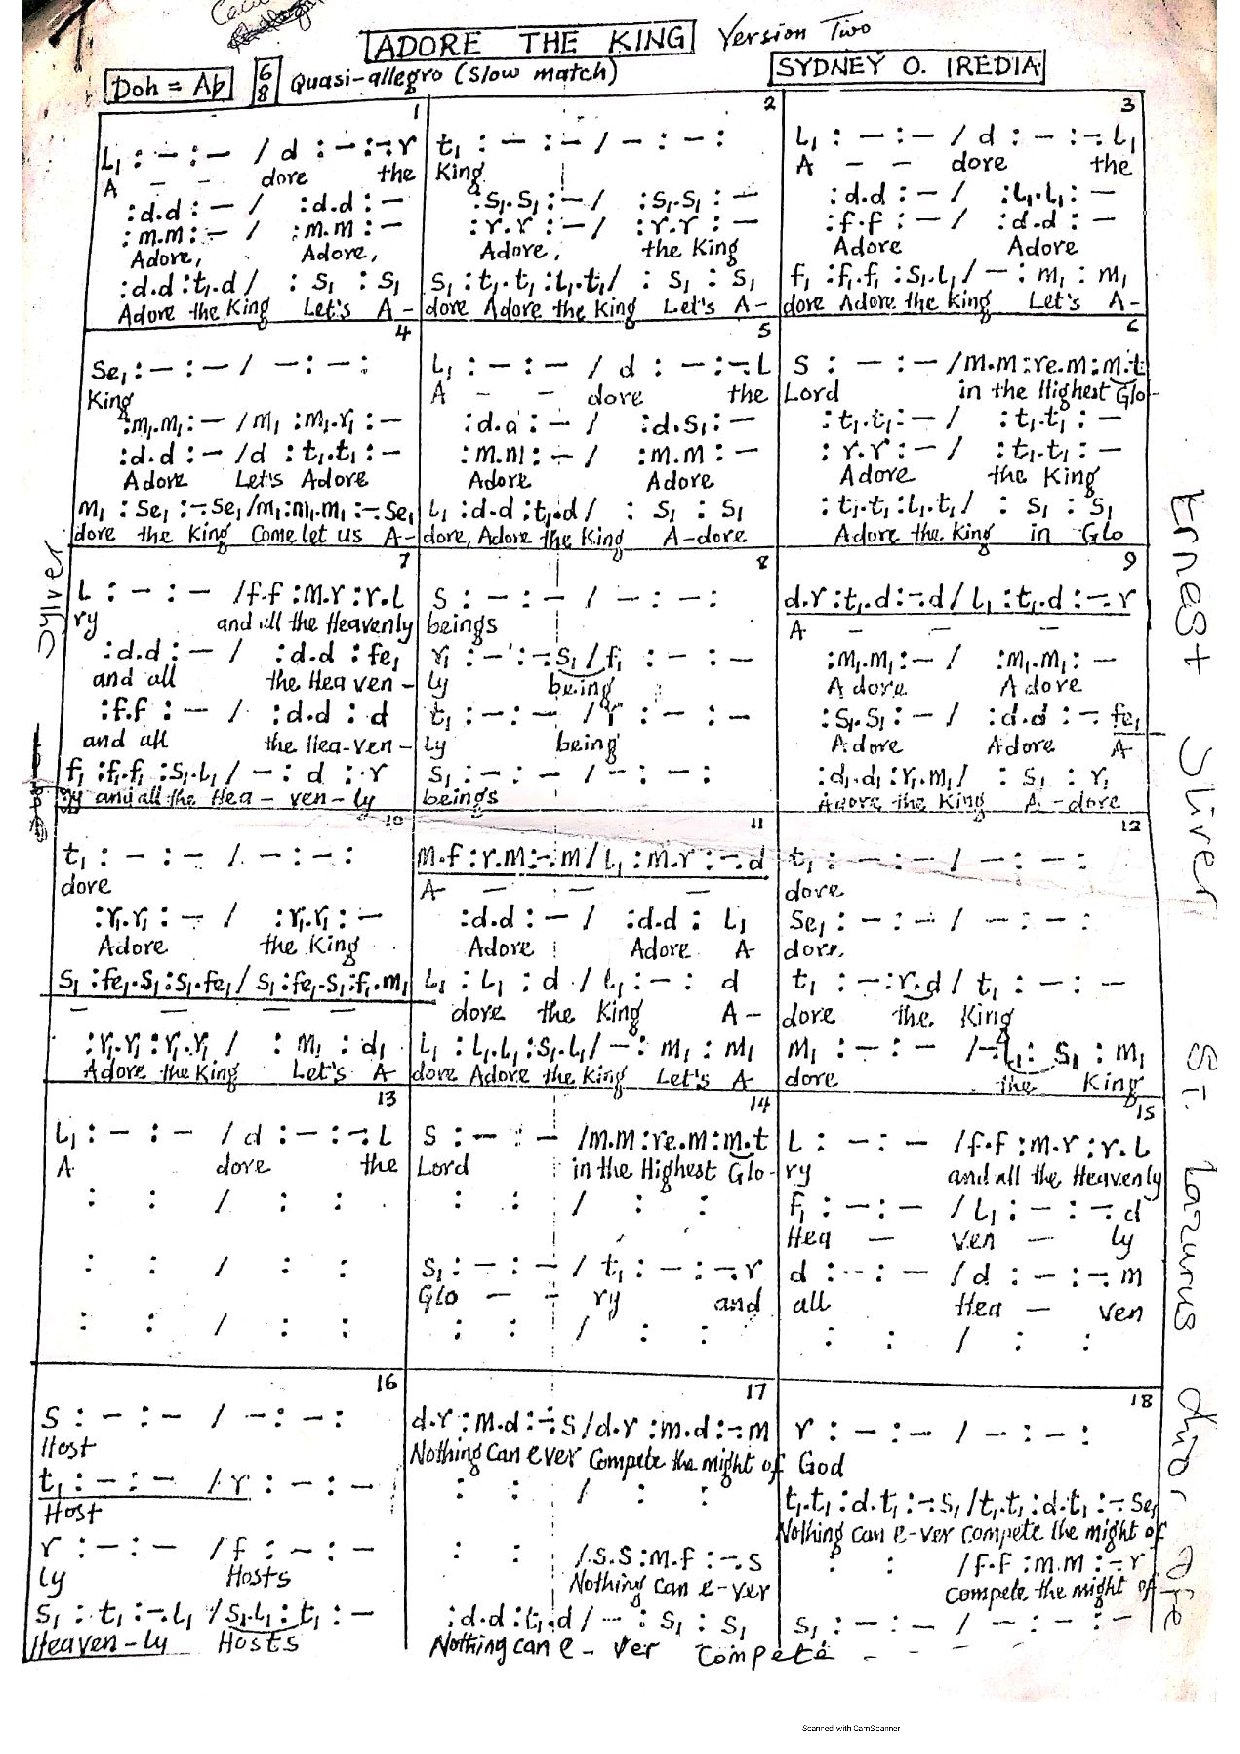 ADORE THE KING Version Two
Doh = Ab 6/8 Quasi-allegro (Slow match) SYDNEY O. IREDIA
1
L₁ : — : — / d : — : —. r
A — — dore the
: d.d : — / : d.d : —
: m.m : — / : m.m : —
Adore, Adore,
: d.d : t₁.d / : S₁ : S₁
Adore the King Let's A –
2
t₁ : — : — / — : — :
King
: S₁.S₁ : — / : S₁.S₁ : —
: r.r : — / : r.r : —
Adore, the King
S₁ : t₁.t₁ : L₁.t₁ / : S₁ : S₁
dore Adore the King Let's A –
3
L₁ : — : — / d : — : —. L₁
A — — dore the
: d.d : — / : L₁.L₁ : —
: f.f : — / : d.d : —
Adore Adore
f₁ : f₁.f₁ : S₁.L₁ / — : m₁ : m₁
dore Adore the king Let's A –
4
Se₁ : — : — / — : — :
King
: m₁.m₁ : — / m₁ : m₁.r₁ : —
: d.d : — / d : t₁.t₁ : —
Adore Let's Adore
m₁ : Se₁ : —. Se₁ / m₁ : m₁.m₁ : —. Se₁
dore the King Come let us A –
5
L₁ : — : — / d : — : —. L
A — — dore the
: d.d : — / : d.S₁ : —
: m.m : — / : m.m : —
Adore Adore
L₁ : d.d : t₁.d / : S₁ : S₁
dore, Adore the King A-dore
6
S : — : — / m.m : re.m : m.t
Lord in the Highest Glo-
: t₁.t₁ : — / : t₁.t₁ : —
: r.r : — / : t₁.t₁ : —
Adore the King
: t₁.t₁ : L₁.t₁ / : S₁ : S₁
Adore the King in Glo
7
L : — : — / f.f : m.r : r.L
ry and all the Heavenly
: d.d : — / : d.d : fe₁
and all the Heaven –
: f.f : — / : d.d : d
and all the Hea-ven –
f₁ : f₁.f₁ : S₁.L₁ / — : d : r
ry and all the Hea – ven – ly
8
S : — : — / — : — :
beings
r₁ : — : —. S₁ / f₁ : — : —
ly being
t₁ : — : — / r : — : —
ly being
S₁ : — : — / — : — :
beings
9
d.r : t₁.d : —. d / L₁ : t₁.d : —. r
A — — —
: m₁.m₁ : — / : m₁.m₁ : —
Adore Adore
: S₁.S₁ : — / : d.d : —. fe₁
Adore Adore A
: d₁.d₁ : r₁.m₁ / : S₁ : r₁
Adore the King A – dore
10
t₁ : — : — / — : — :
dore
: r₁.r₁ : — / : r₁.r₁ : —
Adore the King
S₁ : fe₁.S₁ : S₁.fe₁ / S₁ : fe₁.S₁ : f₁.m₁
— — — —
: r₁.r₁ : r₁.r₁ / : m₁ : d₁
Adore the King Let's A
11
m.f : r.m : —. m / L₁ : m.r : —. d
A — — —
: d.d : — / : d.d : L₁
Adore Adore A
L₁ : L₁ : d / L₁ : — : d
dore the King A –
L₁ : L₁.L₁ : S₁.L₁ / — : m₁ : m₁
dore Adore the King Let's A
12
t₁ : — : — / — : — :
dore
Se₁ : — : — / — : — :
dore
t₁ : — : r.d / t₁ : — : —
dore the King
m₁ : — : — / —. L₁ : S₁ : m₁
dore the King
13
L₁ : — : — / d : — : —. L
A dore the
: : / : :
: : / : :
: : / : :
14
S : — : — / m.m : re.m : m.t
Lord in the Highest Glo-
: : / : :
S₁ : — : — / t₁ : — : —. r
Glo – – ry and
: : / : :
15
L : — : — / f.f : m.r : r.L
ry and all the Heavenly
f₁ : — : — / L₁ : — : —. d
Hea — ven — ly
d : — : — / d : — : —. m
all Hea — ven
: : / : :
16
S : — : — / — : — :
Host
t₁ : — : — / r : — : —
Host
r : — : — / f : — : —
ly Hosts
S₁ : t₁ : —. L₁ / S₁.L₁ : t₁ : —
Heaven – ly Hosts
17
d.r : m.d : —. S / d.r : m.d : —. m
Nothing can ever compete the might of
: : / : :
: : / S.S : m.f : —. s
Nothing can e-ver
: d.d : t₁.d / — : S₁ : S₁
Nothing can e – ver Compete
18
r : — : — / — : — :
God
t₁.t₁ : d.t₁ : —. S₁ / t₁.t₁ : d.t₁ : —. Se₁
Nothing can e-ver compete the might of
: : / f.f : m.m : —. r
compete the might of
S₁ : — : — / — : — : —
— — —
Sylver
Ernest Sliver St. Lazurus
Scanned with CamScanner